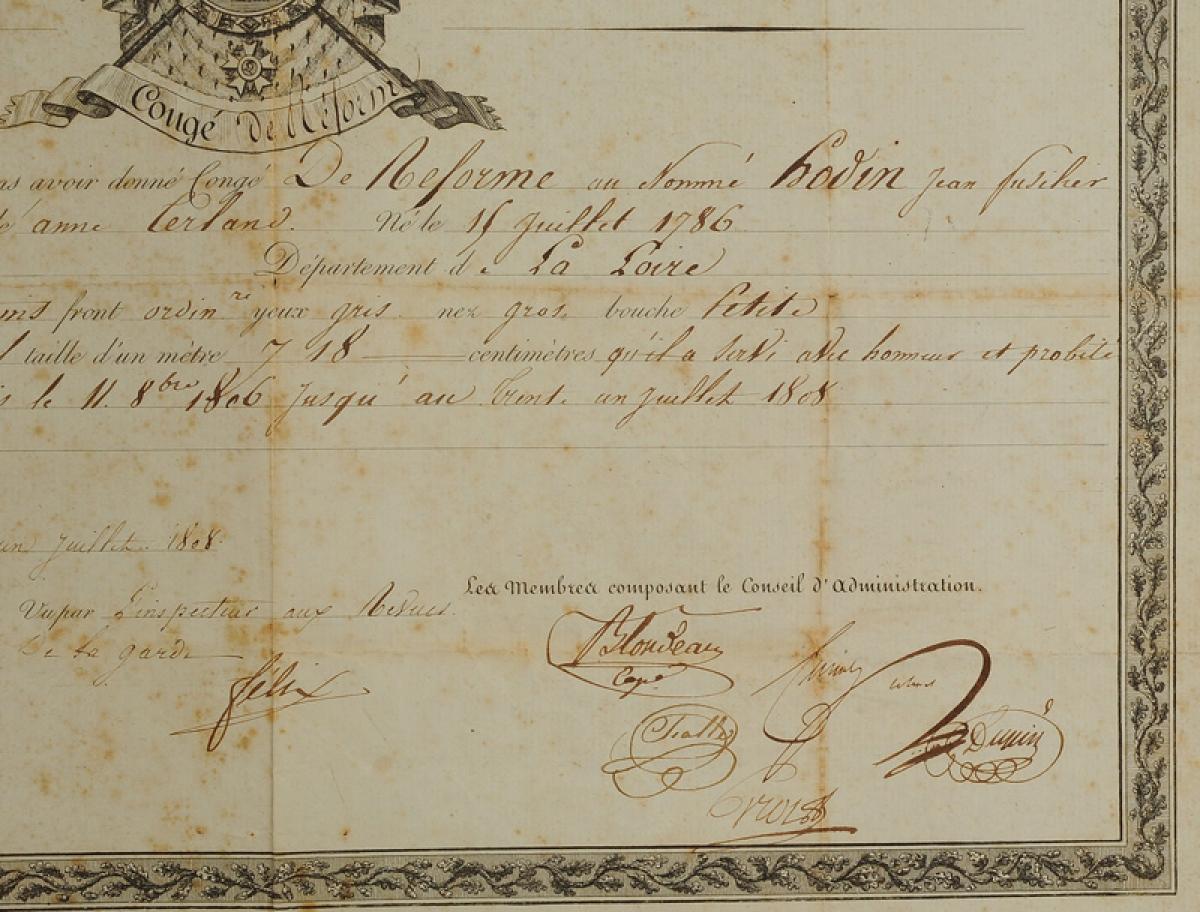 Congé de Réform
avoir donné Congé De Reforme au Nommé Bodin Jean fusilier
de anne Terland. Né le 15 Juillet 1786
Département de La Loire
front ordin re yeux gris nez gros bouche Petite
taille d'un mètre 7 18 centimètres qu'il a servi avec honneur et probité
le 11. 8bre 1806 Jusqu'au trente un Juillet 1808
un Juillet 1808
Les Membres composant le Conseil d'Administration.
Vu par L'inspecteur aux Revues
De La garde
Félix
Blondeau
Capne
Dupin